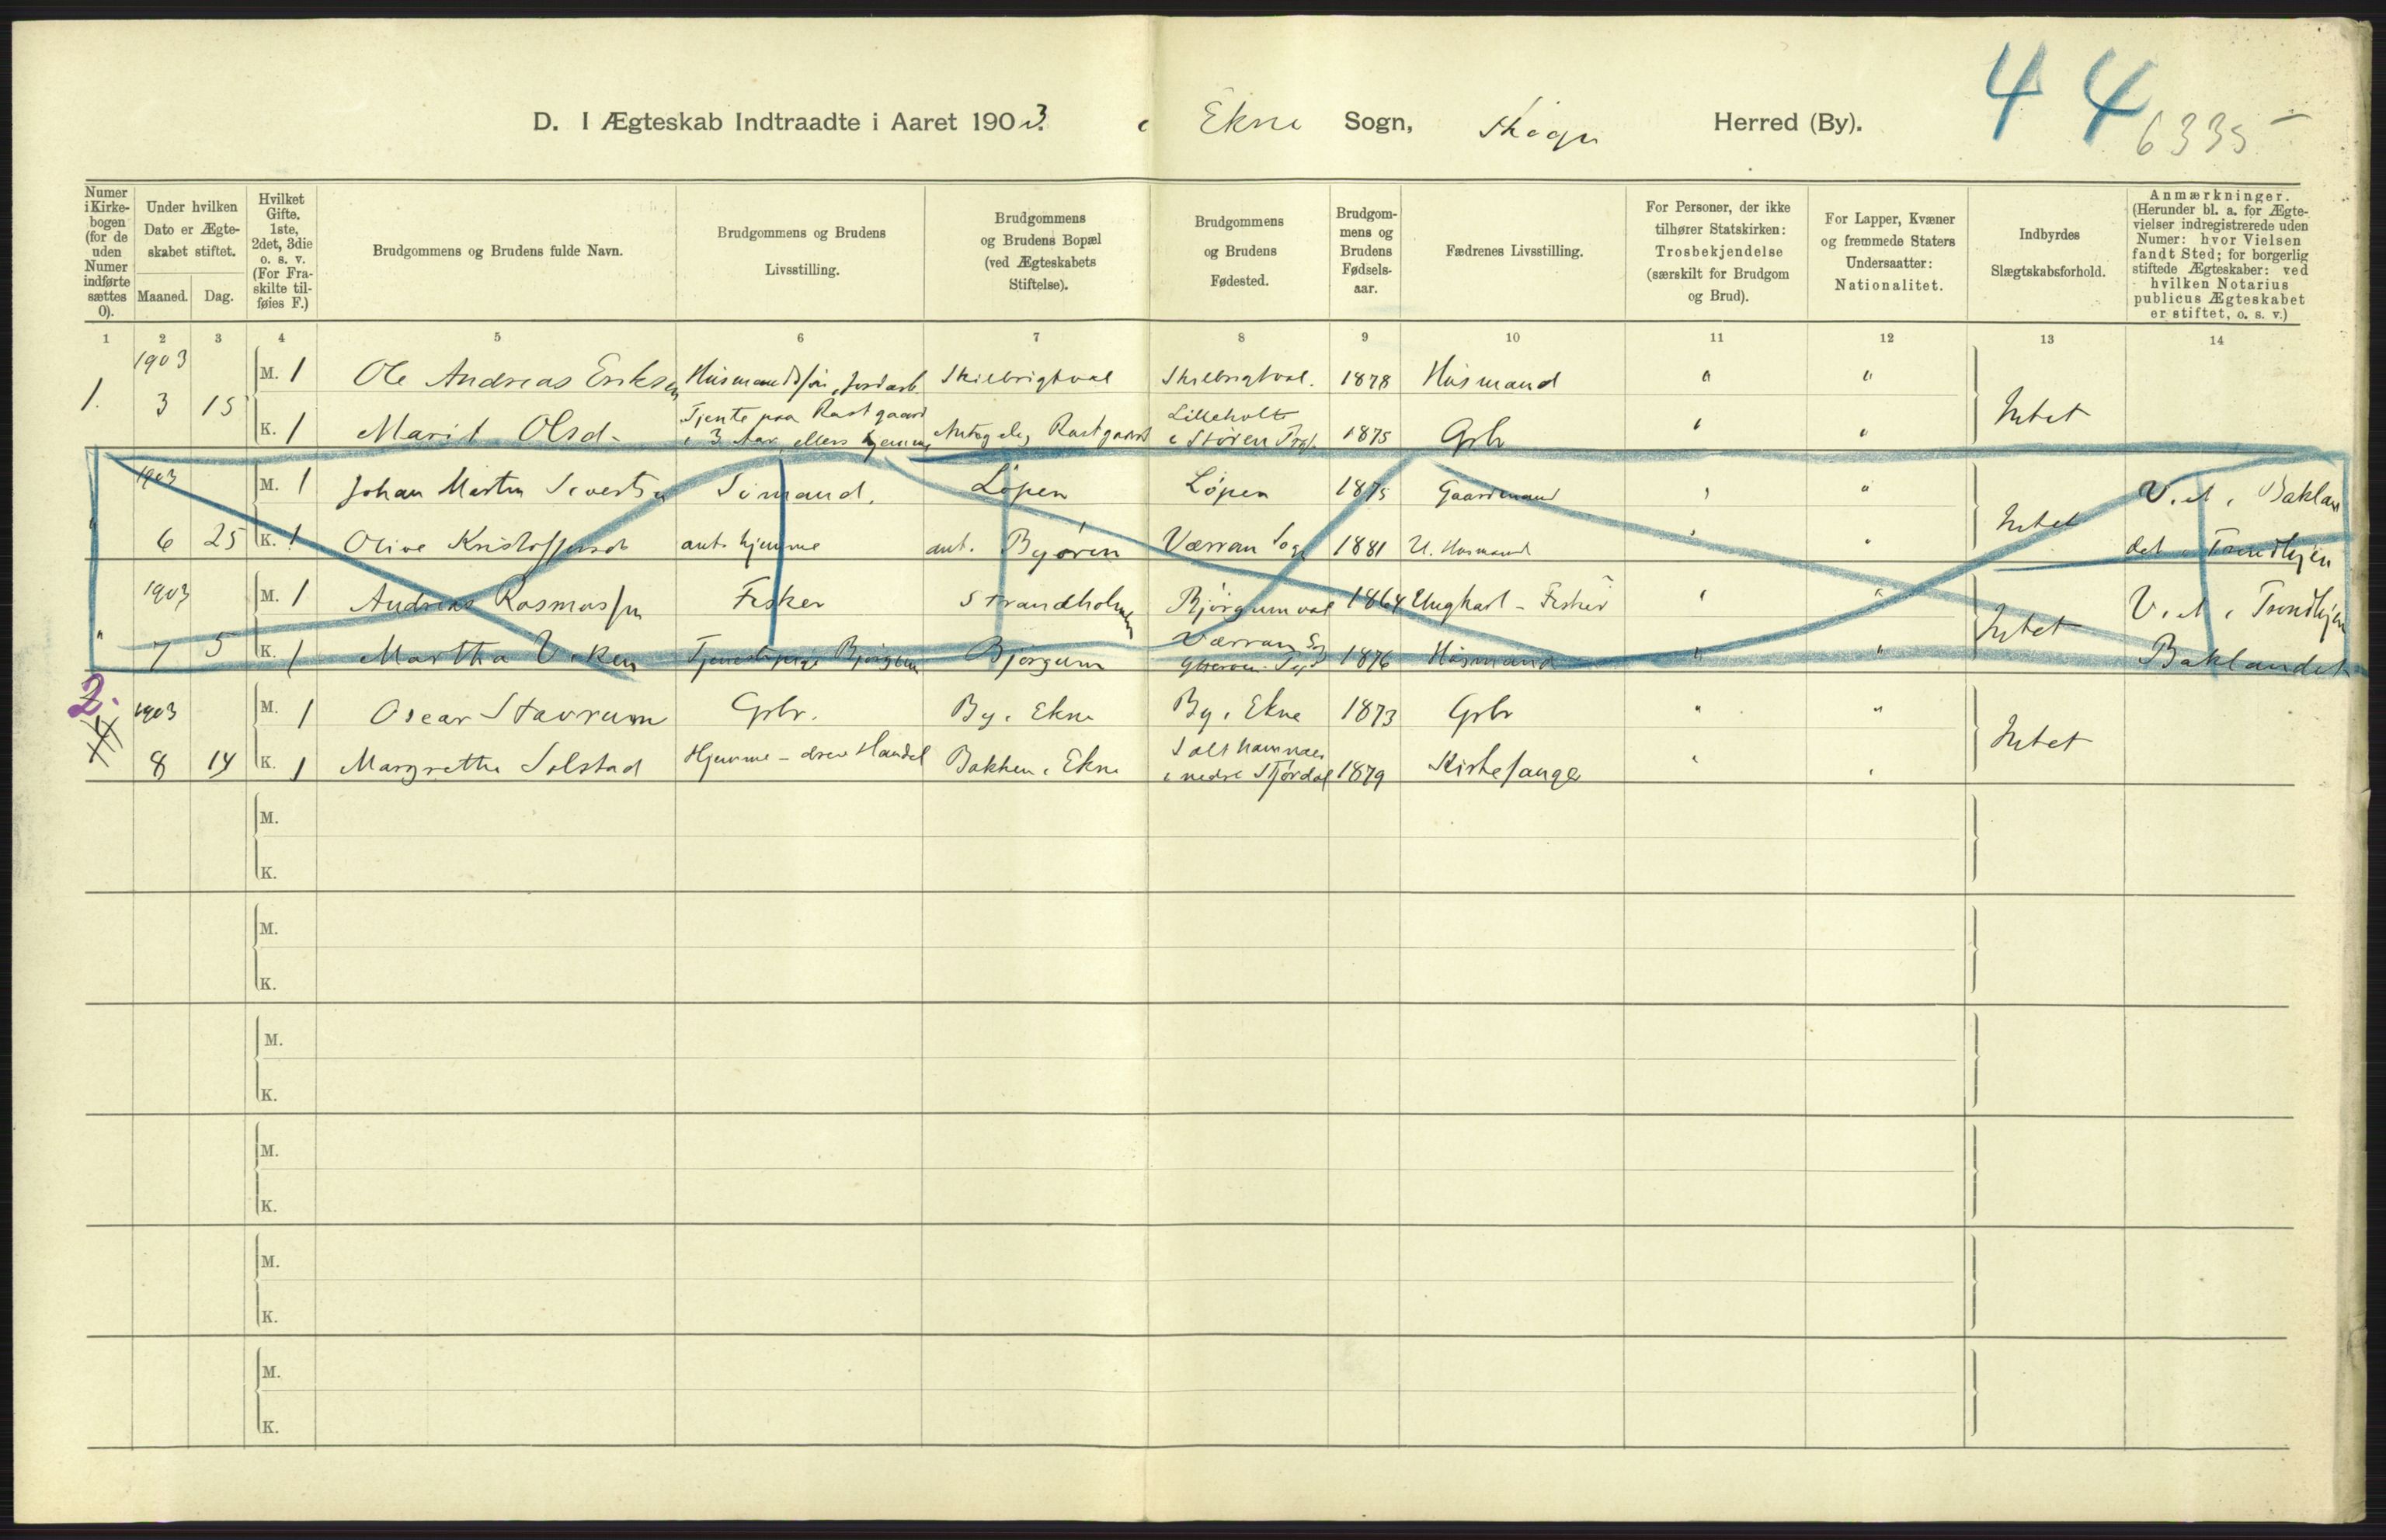 44
6335
D. I Ægteskab Indtraadte i Aaret 1903. i Ekne Sogn, Skogn Herred (By).
Numer i Kirkebogen (for de uden Numer indførte sættes 0).
Under hvilken Dato er Ægteskabet stiftet.
Maaned. Dag.
Hvilket Gifte. 1ste, 2det, 3die o. s. v. (For Fraskilte tilføies F.)
Brudgommens og Brudens fulde Navn.
Brudgommens og Brudens Livsstilling.
Brudgommens og Brudens Bopæl (ved Ægteskabets Stiftelse).
Brudgommens og Brudens Fødested.
Brudgommens og Brudens Fødselsaar.
Fædrenes Livsstilling.
For Personer, der ikke tilhører Statskirken: Trosbekjendelse (særskilt for Brudgom og Brud).
For Lapper, Kvæner og fremmede Staters Undersaatter: Nationalitet.
Indbyrdes Slægtskabsforhold.
Anmærkninger. (Herunder bl. a. for Ægtevielser indregistrerede uden Numer: hvor Vielsen fandt Sted; for borgerlig stiftede Ægteskaber: ved hvilken Notarius publicus Ægteskabet er stiftet, o. s. v.)
1 2 3 4 5 6 7 8 9 10 11 12 13 14
1903 M. 1 Ole Andreas Eriksen Husmandssøn, Jordarb. Skilbrigtval Skilbrigtval. 1878 Husmand " "
1. 3 15 K. 1 Marit Olsd. Tjente paa Rastgaard i 3 Aar, ellers hjemme Rastgaard Lilleholt i Støren 1875 Gbr " " Intet
1903 M. 1 Johan Martin Sivertsen Sømand. Løpen Løpen 1875 Gaardmand " " V. et i Baklan
" 6 25 K. 1 Olive Kristoffersd. ant. hjemme ant. Byøren Værran Sogn 1881 U. Husmand " " Intet det i Trondhjem
1903 M. 1 Andreas Rasmussen Fisker Strandholmen Bjørgumval 1864 Ungkarl - Fisker " " V. et i Trondhjem
" 7 5 K. 1 Martha Viken Tjenestepige Bjørgum Bjørgum Værran Sogn 1876 Husmand " " Intet Baklandet
2. 1903 M. 1 Oscar Stavrum Gbr. By i Ekne By i Ekne 1873 Gbr " "
8 14 K. 1 Margrethe Solstad Hjemme - drev Handel Bakken i Ekne Salthammer i nedre Stjørdal 1879 Kirkesanger " " Intet
M.
K.
M.
K.
M.
K.
M.
K.
M.
K.
M.
K.